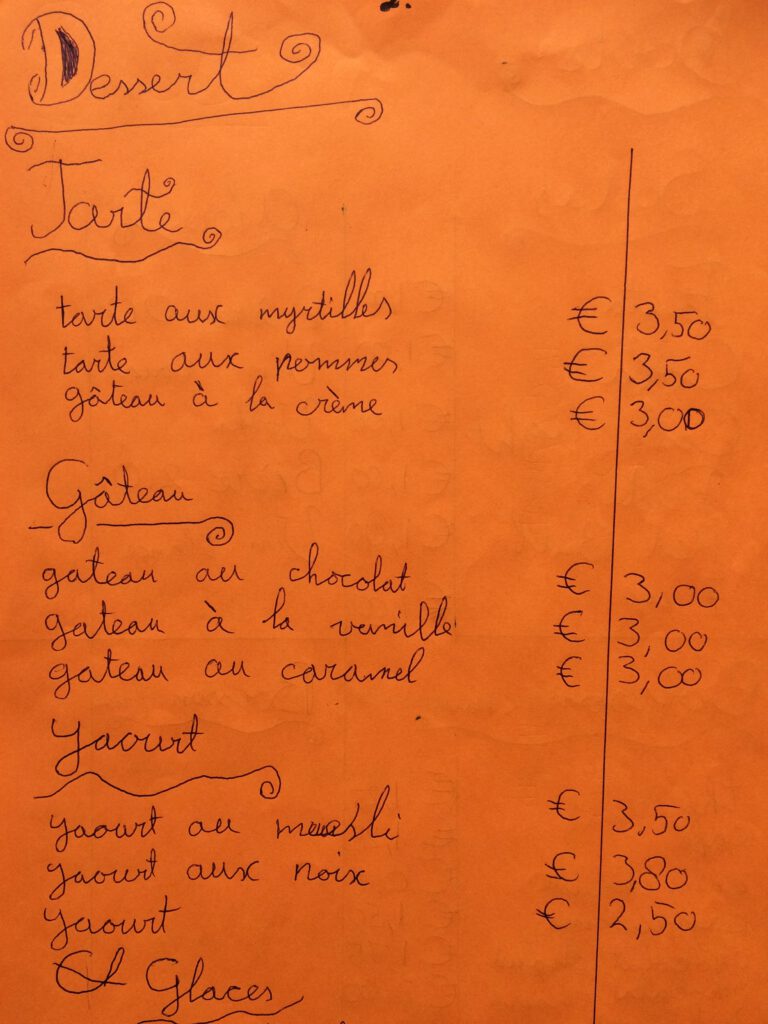 Dessert
Tarte
tarte aux myrtilles € 3,50
tarte aux pommes € 3,50
gâteau à la crème € 3,00
Gâteau
gateau au chocolat € 3,00
gateau à la vanille € 3,00
gateau au caramel € 3,00
Yaourt
yaourt au muesli € 3,50
yaourt aux noix € 3,80
yaourt € 2,50
Glaces